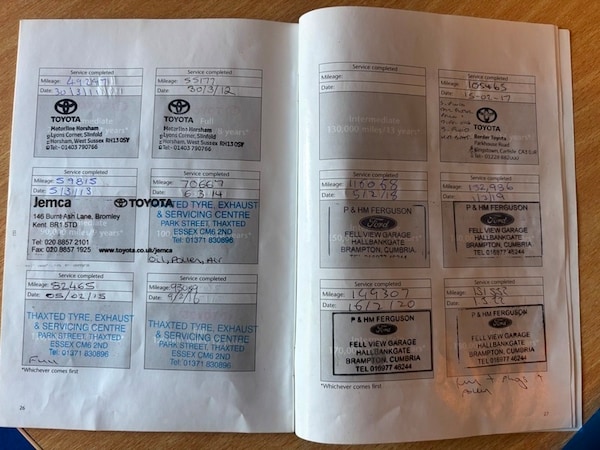 Service completed
Mileage:
Date: 30/3/11
TOYOTA
Motorline Horsham
Lyons Corner, Slinfold
Horsham, West Sussex RH13 0SY
Tel:-01403 790766
Service completed
Mileage: 55177
Date: 30/3/12
TOYOTA
Motorline Horsham
Lyons Corner, Slinfold
Horsham, West Sussex RH13 0SY
Tel:-01403 790766
Service completed
Mileage: 59815
Date: 5/3/13
Jemca TOYOTA
146 Burnt Ash Lane, Bromley
Kent BR1 5TD
Tel: 020 8857 2101
Fax: 020 8857 1925 www.toyota.co.uk/jemca
Service completed
Mileage: 70667
Date: 6.3.14
THAXTED TYRE, EXHAUST
& SERVICING CENTRE
PARK STREET, THAXTED
ESSEX CM6 2ND
Tel: 01371 830896
Oil, Pollen, Air
Service completed
Mileage: 82465
Date: 05/02/15
THAXTED TYRE, EXHAUST
& SERVICING CENTRE
PARK STREET, THAXTED
ESSEX CM6 2ND
Tel: 01371 830896
Full
Service completed
Mileage:
Date: 9/2/16
THAXTED TYRE, EXHAUST
& SERVICING CENTRE
PARK STREET, THAXTED
ESSEX CM6 2ND
Tel: 01371 830896
*Whichever comes first
26
Service completed
Mileage:
Date:
Intermediate
130,000 miles/13 years*
Service completed
Mileage: 105465
Date: 15-02-17
TOYOTA
Border Toyota
Parkhouse Road
Kingstown, Carlisle CA3 0JR
Service completed
Mileage: 116068
Date: 15/2/18
P & HM FERGUSON
Ford
FELL VIEW GARAGE
HALLBANKGATE
BRAMPTON, CUMBRIA
TEL 016977 46244
Service completed
Mileage: 132,936
Date: 1/2/19
P & HM FERGUSON
Ford
FELL VIEW GARAGE
HALLBANKGATE
BRAMPTON, CUMBRIA
TEL 016977 46244
Service completed
Mileage: 149307
Date: 16/7/20
P & HM FERGUSON
Ford
FELL VIEW GARAGE
HALLBANKGATE
BRAMPTON, CUMBRIA
TEL 016977 46244
Service completed
Mileage:
Date:
P & HM FERGUSON
Ford
FELL VIEW GARAGE
HALLBANKGATE
BRAMPTON, CUMBRIA
TEL 016977 46244
*Whichever comes first
27